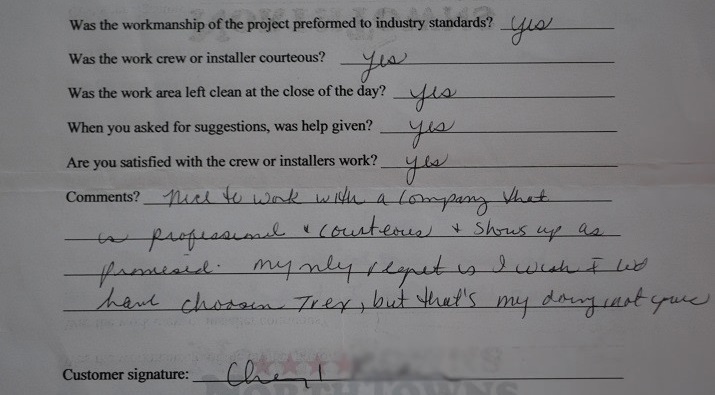 Was the workmanship of the project preformed to industry standards? yes
Was the work crew or installer courteous? yes
Was the work area left clean at the close of the day? yes
When you asked for suggestions, was help given? yes
Are you satisfied with the crew or installers work? yes
Comments? Nice to work with a company that
is professional & courteous & shows up as
promised. My only regret is I wish I
have choosen Trex, but that's my doing not yours
Customer signature: Cheryl